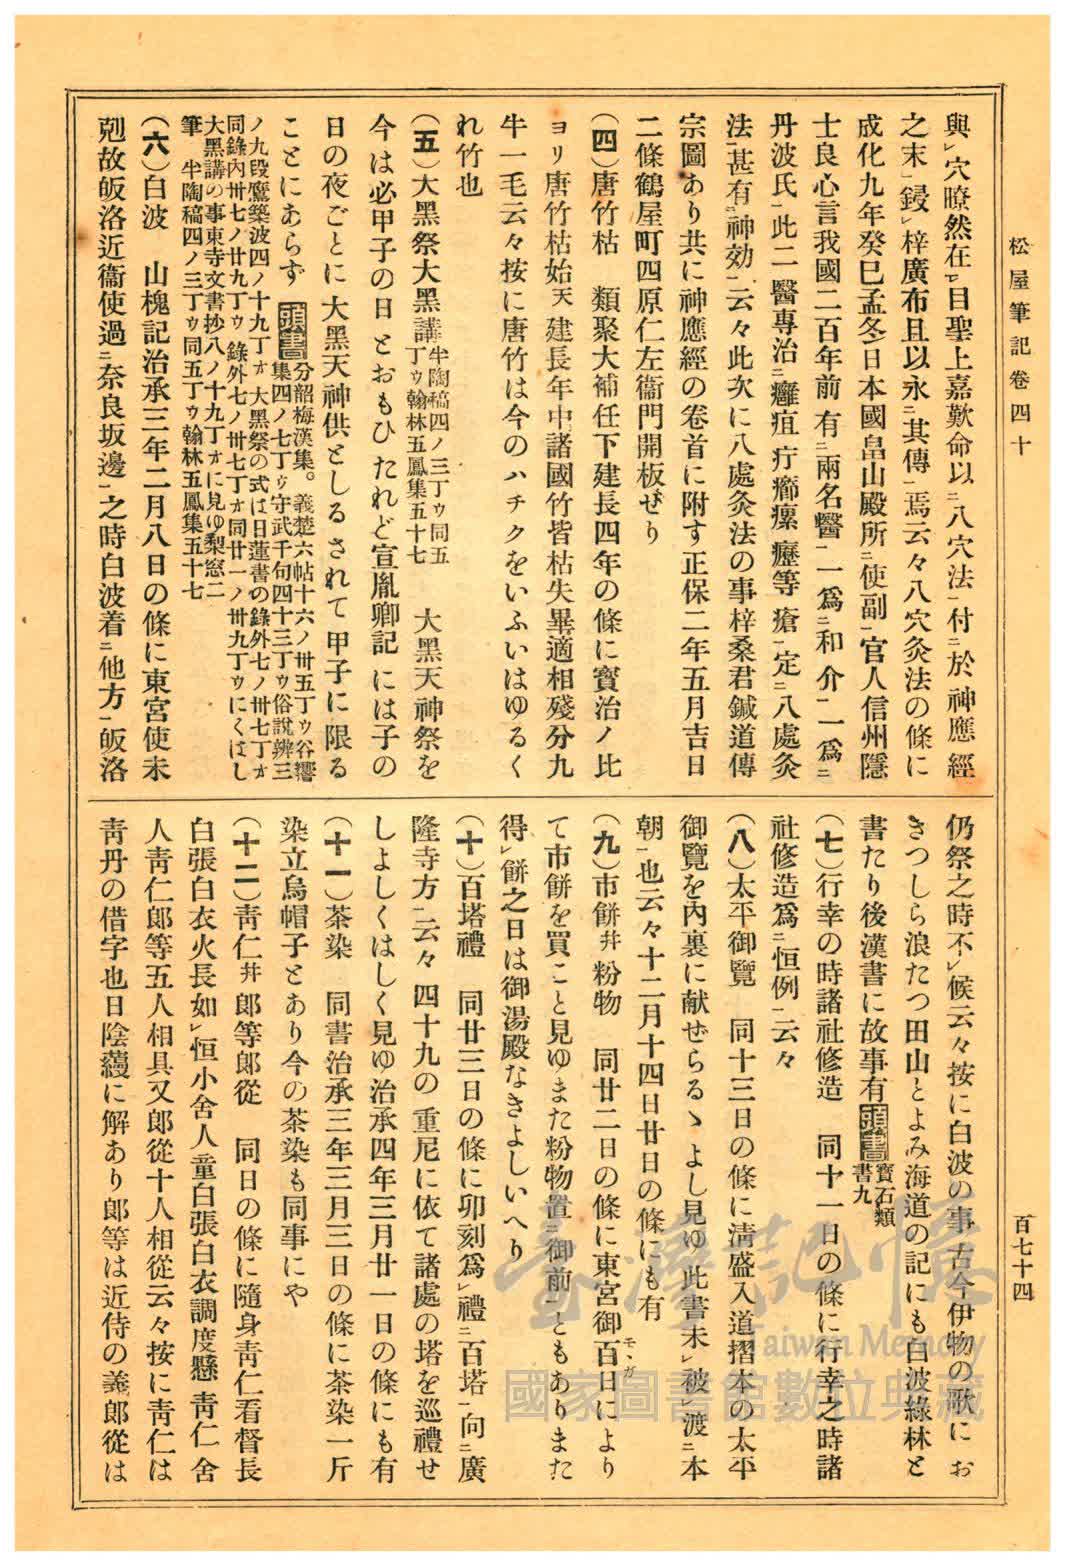 松屋筆記卷四十
百七十四
與㆑穴瞭然在㆑目聖上嘉歎命以㆓八穴法㆒付㆓於神應經
之末㆒鋟㆑梓廣布且以永㆓其傳㆒焉云々八穴灸法の條に
成化九年癸巳孟冬日本國畠山殿所㆑使副㆓官人信州隱
士良心言我國二百年前有㆓兩名醫㆒一爲㆓和介㆒一爲㆓
丹波氏㆒此二醫專治㆓癰疽疔癤瘰癧等瘡㆒定㆓八處灸
法㆒甚有㆓神効㆒云々此次に八處灸法の事梓桑君鍼道傳
宗圖あり共に神應經の卷首に附す正保二年五月吉日
二條鶴屋町四原仁左衞門開板せり
(四)唐竹枯　類聚大補任下建長四年の條に寳治ノ比
ヨリ唐竹枯始天建長年中諸國竹皆枯失畢適相殘分九
牛一毛云々按に唐竹は今のハチクをいふいはゆるく
れ竹也
(五)大黑祭大黑講半陶稿四ノ三丁ゥ同五
丁ゥ翰林五鳳集五十七　大黑天神祭を
今は必甲子の日とおもひたれど宣胤卿記には子の
日の夜ごとに大黑天神供としるされて甲子に限る
ことにあらず頭書分韶梅漢集。義楚六帖十六ノ卅五丁ゥ谷響
集四ノ七丁ゥ守武千句四十三丁ゥ俗說辨三
ノ九段鷹築波四ノ十九丁ォ大黑祭の式は日蓮書の錄外七ノ卅七丁ォ
同錄內卅七ノ廿九丁ゥ錄外七ノ卅七丁ォ同廿一ノ卅九丁ゥにくはし
大黑講の事東寺文書抄八ノ十九丁ォに見ゆ梨窓二
筆　半陶稿四ノ三丁ゥ同五丁ゥ翰林五鳳集五十七
(六)白波　山槐記治承三年二月八日の條に東宮使未
剋故皈洛近衞使過㆓奈良坂邊㆒之時白波着㆓他方㆒皈洛
仍祭之時不㆑候云々按に白波の事古今伊物の歌にお
きつしら浪たつ田山とよみ海道の記にも白波綠林と
書たり後漢書に故事有頭書寶石類
書九
(七)行幸の時諸社修造　同十一日の條に行幸之時諸
社修造爲㆓恒例㆒云々
(八)太平御覽　同十三日の條に淸盛入道摺本の太平
御覽を內裏に献ぜらるゝよし見ゆ此書未㆑被㆑渡㆓本
朝㆒也云々十二月十四日廿日の條にも有
(九)市餅幷粉物　同廿二日の條に東宮御百日モヽガにより
て市餅を買こと見ゆまた粉物置㆓御前㆒ともありまた
得㆑餅之日は御湯殿なきよしいへり
(十)百塔禮　同廿三日の條に卯刻爲㆑禮㆓百塔㆒向㆓廣
隆寺方㆒云々四十九の重尼に依て諸處の塔を巡禮せ
しよしくはしく見ゆ治承四年三月廿一日の條にも有
(十一)茶染　同書治承三年三月三日の條に茶染一斤
染立烏帽子とあり今の茶染も同事にや
(十二)靑仁幷郞等郞從　同日の條に隨身靑仁看督長
白張白衣火長如㆑恒小舍人童白張白衣調度懸靑仁舍
人靑仁郞等五人相具又郞從十人相從云々按に靑仁は
靑丹の借字也日陰蘰に解あり郞等は近侍の義郞從は
臺灣記憶
Taiwan Memory
國家圖書館數位典藏